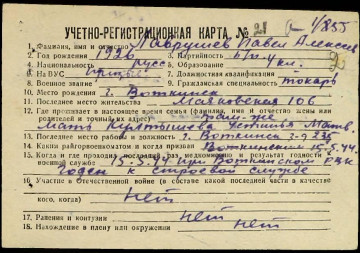 1/855
УЧЕТНО-РЕГИСТРАЦИОННАЯ КАРТА №
1. Фамилия, имя и отчество Лаврушев Павел Алексеев
2. Год рождения 1926 3. Партийность б/п
4. Национальность русс 5. Образование 4 кл.
6. На ВУС 7. Должностная квалификация
8. Военное звание 9. Гражданская специальность токарь
10. Место рождения г. Воткинск
11. Последнее место жительства 106
12. Где проживает в настоящее время семья (фамилия, имя, отчество жены или
родителей и точный их адрес) там-же
Мать Матв
13. Последнее место работы и должность г. Воткинск
14. Каким райгорвоенкоматом и когда призван Воткинским 15.5.44.
15. Когда и где проходил последний раз медкомиссию и результат годности к
военной службе 15.5.44 при Воткинском РВК
годен к строевой службе
16. Участие в Отечественной войне (в составе какой последней части в качестве
кого, когда) нет
17. Ранения и контузии нет
18. Нахождение в плену или окружении нет